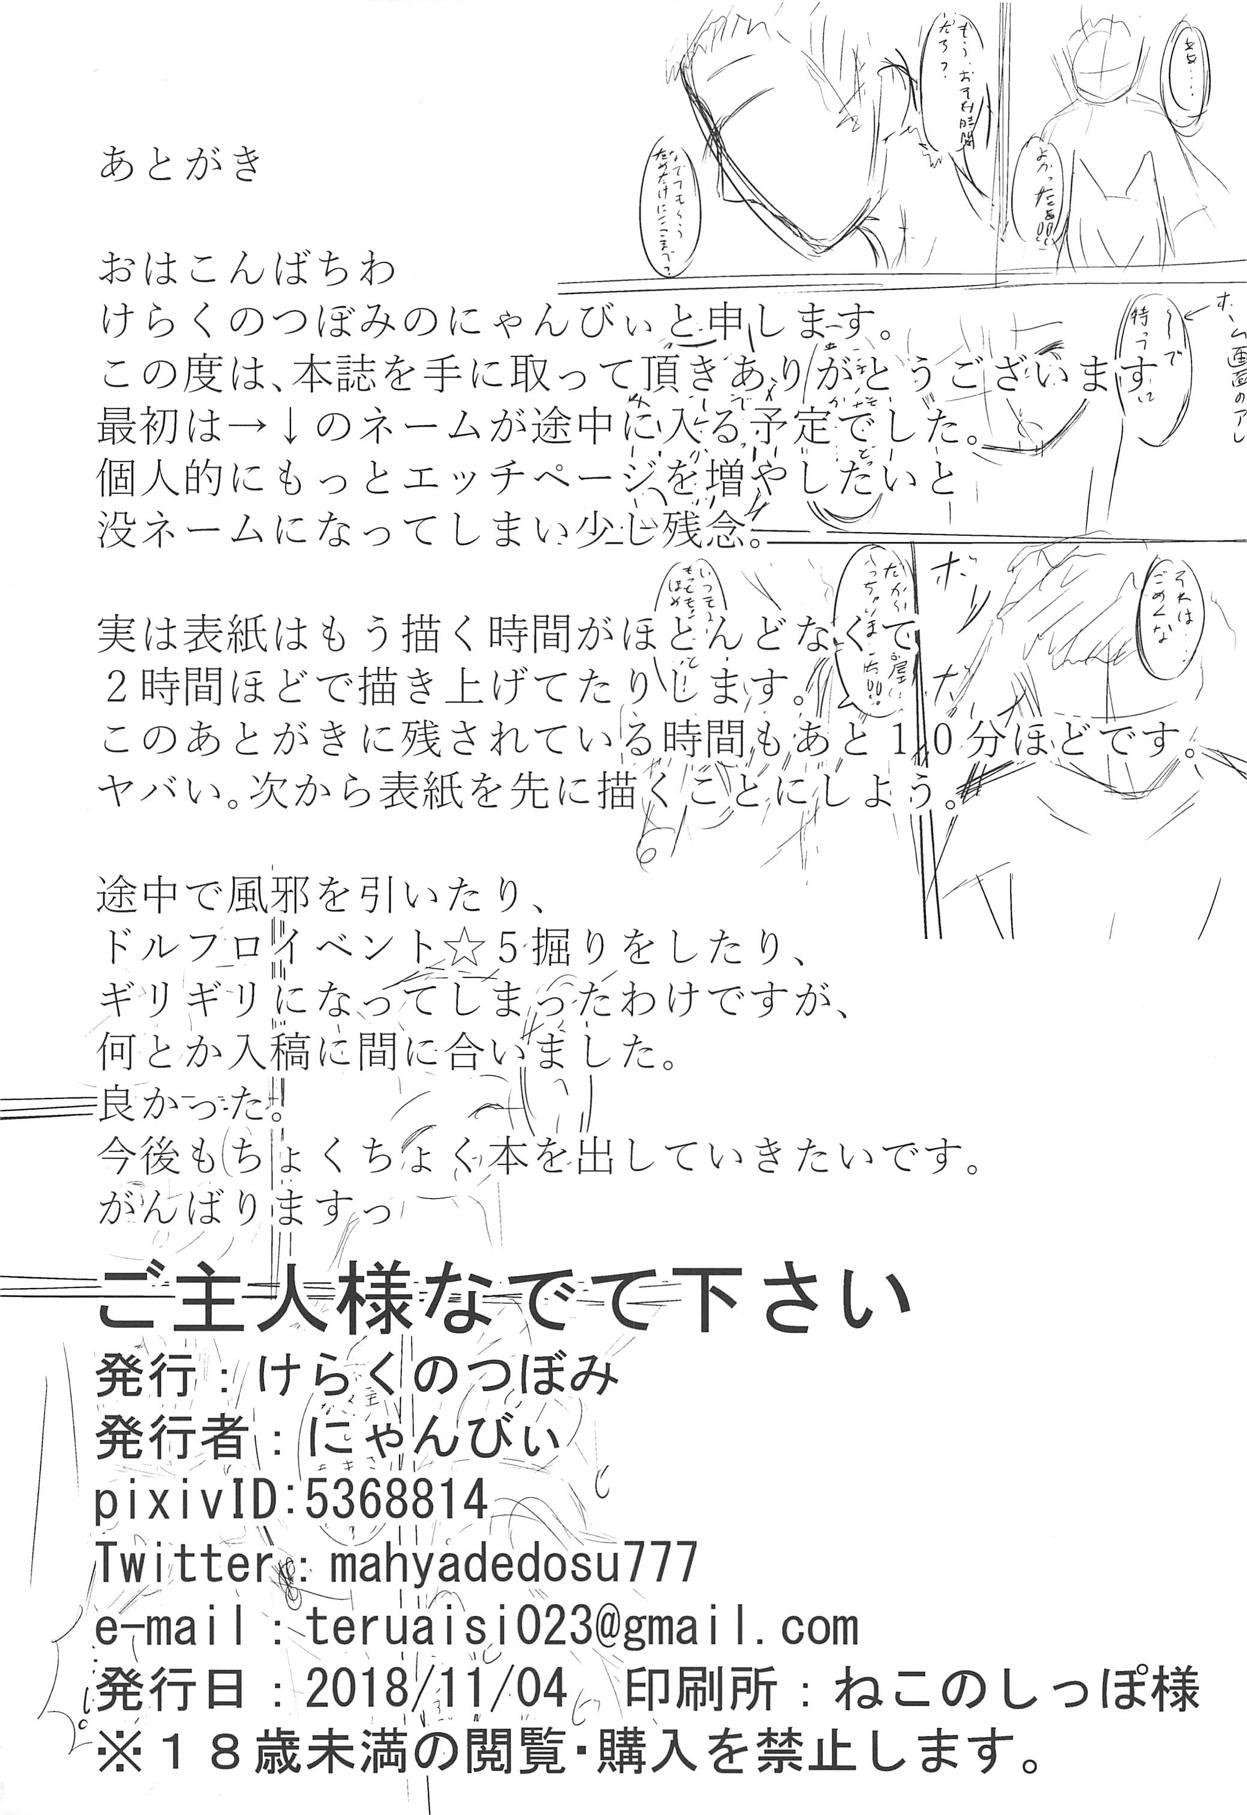 あとがき
おはこんばちわ
けらくのつぼみのにゃんびぃと申します。
この度は、本誌を手に取って頂きありがとうございます
最初は→↓のネームが途中に入る予定でした。
個人的にもっとエッチページを増やしたいと
没ネームになってしまい少し残念。
実は表紙はもう描く時間がほとんどなくて
２時間ほどで描き上げてたりします。
このあとがきに残されている時間もあと１０分ほどです。
ヤバい。次から表紙を先に描くことにしよう。
途中で風邪を引いたり、
ドルフロイベント☆５掘りをしたり、
ギリギリになってしまったわけですが、
何とか入稿に間に合いました。
良かった。
今後もちょくちょく本を出していきたいです。
がんばりますっ
ご主人様なでて下さい
発行：けらくのつぼみ
発行者：にゃんびぃ
pixivID:5368814
Twitter：mahyadedosu777
e-mail：teruaisi023@gmail.com
発行日：2018/11/04　印刷所：ねこのしっぽ様
※１８歳未満の閲覧・購入を禁止します。
よかったぁ!!
ホーム画面のアレ
それは…
ごめんな